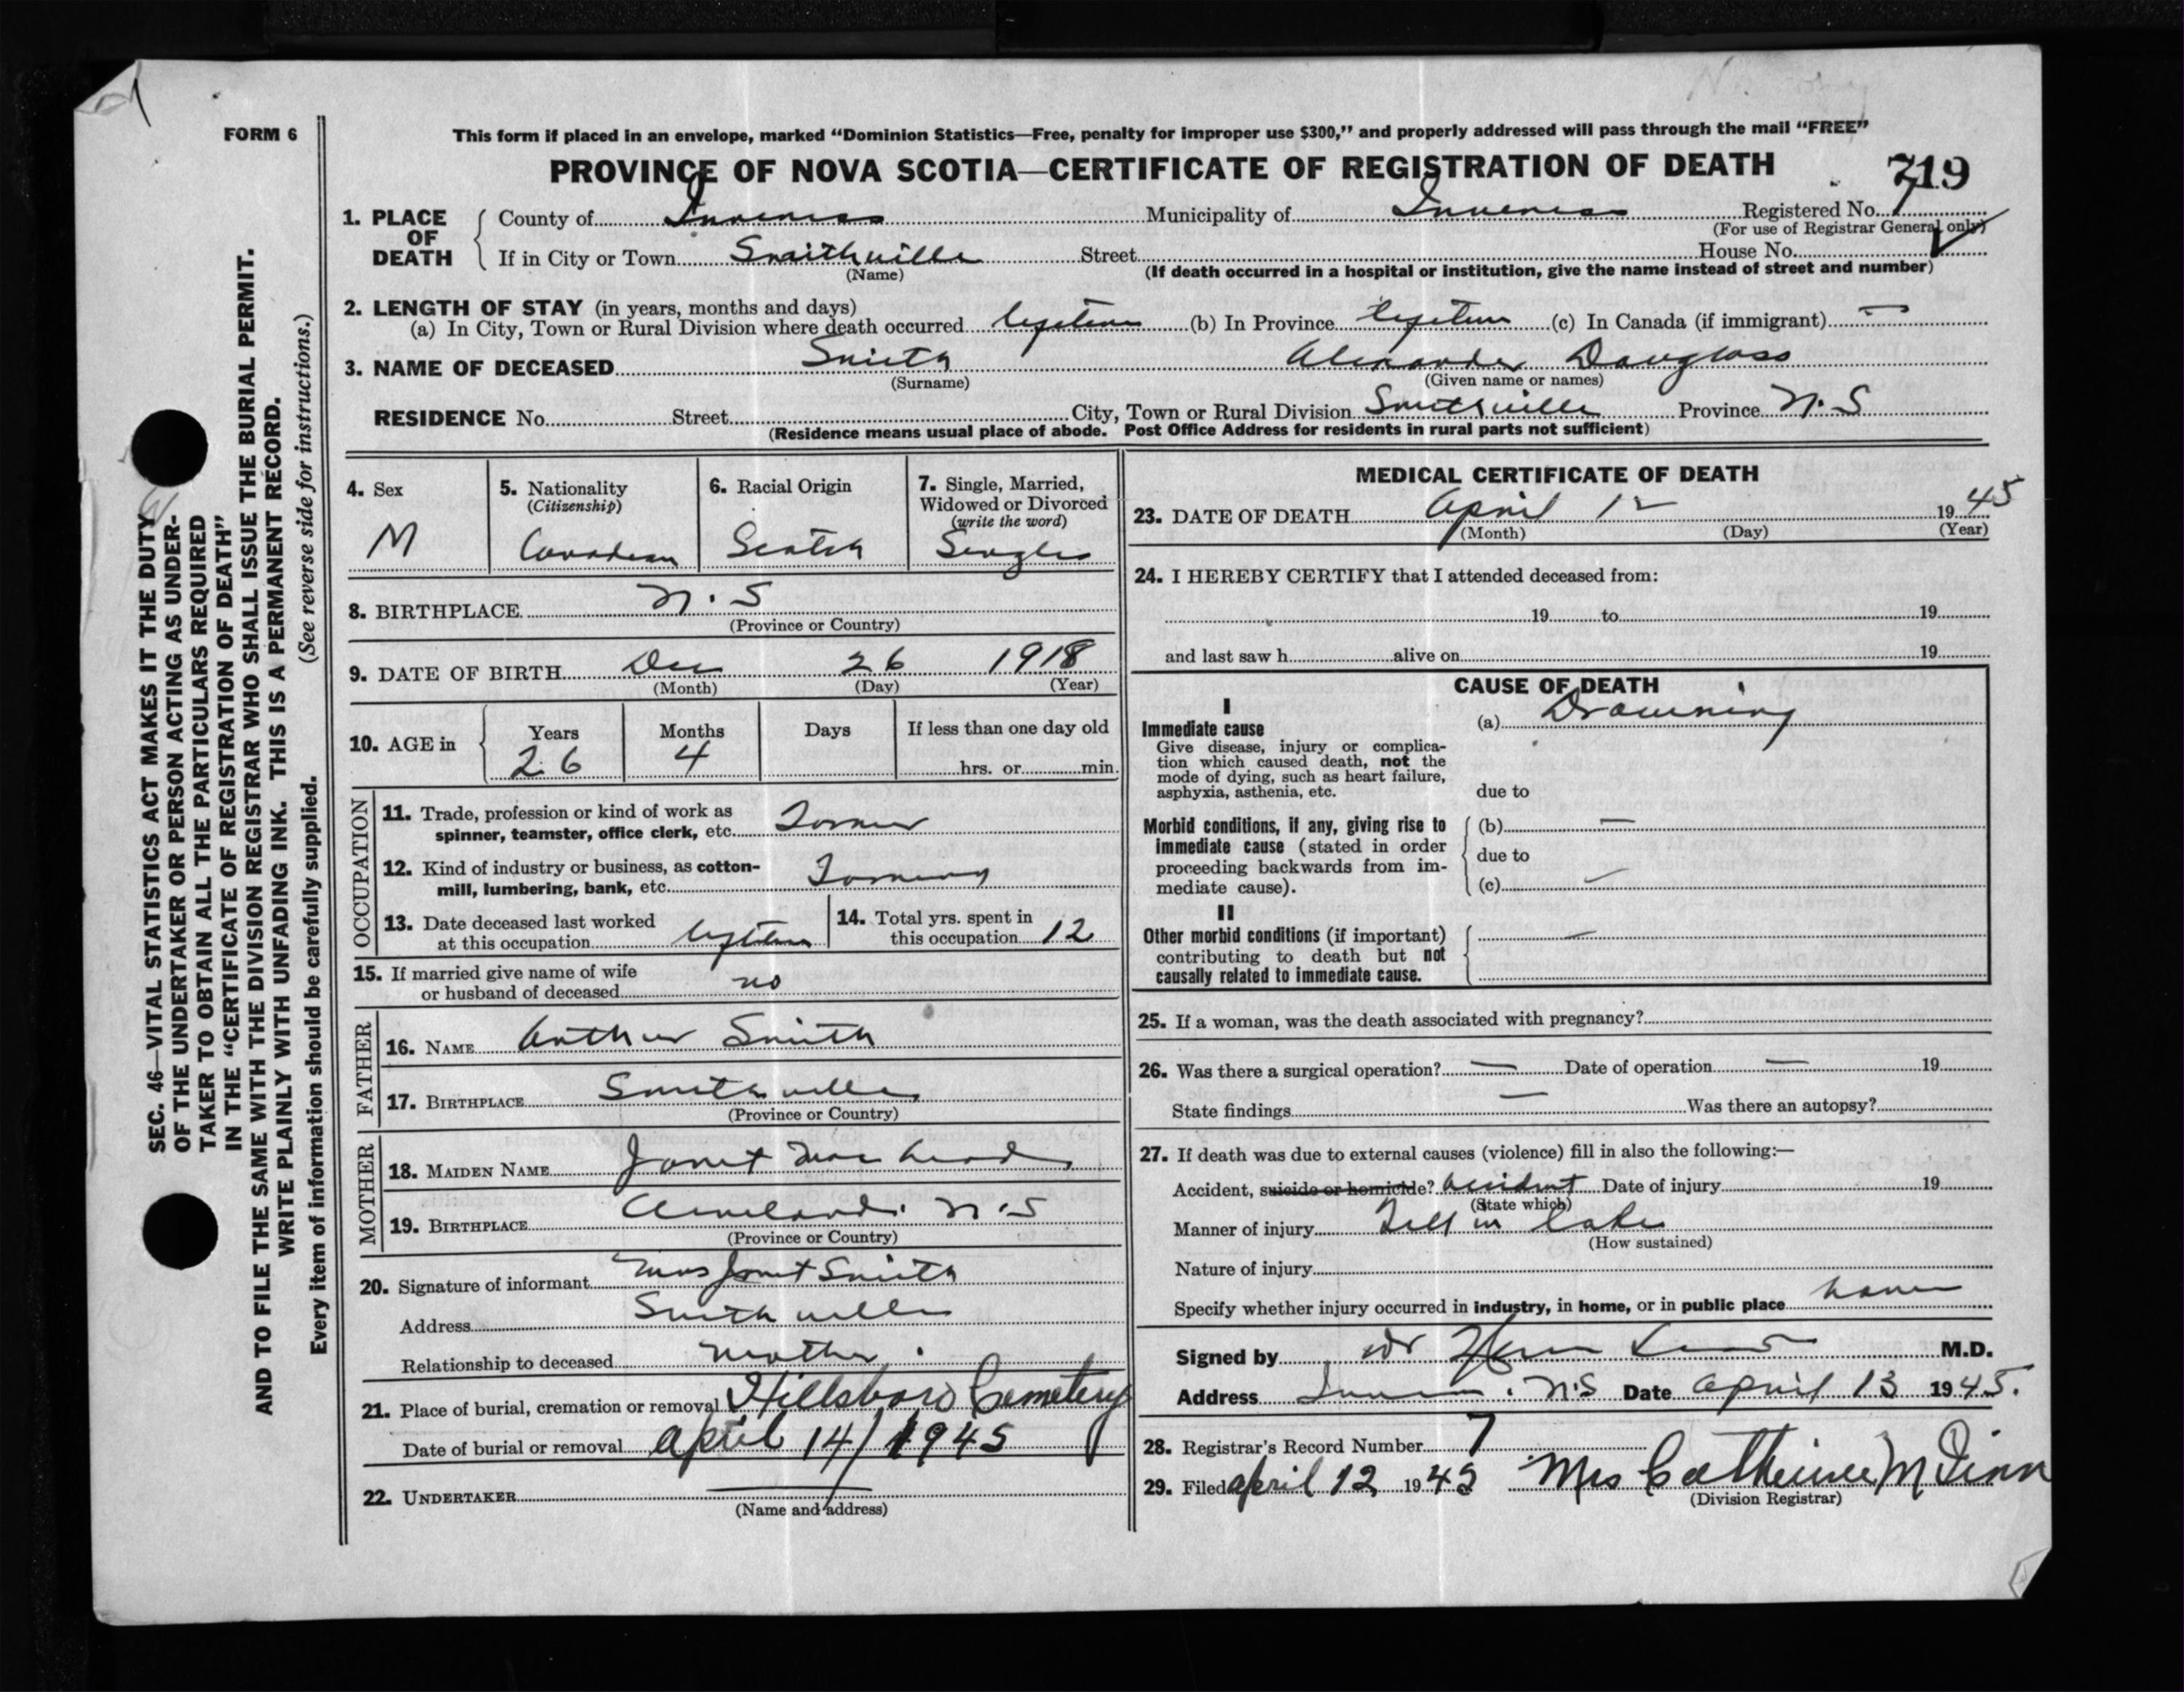 FORM 6
This form if placed in an envelope, marked “Dominion Statistics—Free, penalty for improper use $300,” and properly addressed will pass through the mail “FREE”
PROVINCE OF NOVA SCOTIA—CERTIFICATE OF REGISTRATION OF DEATH
719
1. PLACE OF DEATH
County of Inverness Municipality of Inverness Registered No. 7
(For use of Registrar General only)
If in City or Town Smithville Street House No.
(Name) (If death occurred in a hospital or institution, give the name instead of street and number)
2. LENGTH OF STAY (in years, months and days)
(a) In City, Town or Rural Division where death occurred lifetime (b) In Province lifetime (c) In Canada (if immigrant) —
3. NAME OF DECEASED Smith Alexander Douglass
(Surname) (Given name or names)
RESIDENCE No. Street City, Town or Rural Division Smithville Province N.S
(Residence means usual place of abode. Post Office Address for residents in rural parts not sufficient)
4. Sex
M
5. Nationality
(Citizenship)
Canadian
6. Racial Origin
Scotch
7. Single, Married,
Widowed or Divorced
(write the word)
Single
8. BIRTHPLACE N.S
(Province or Country)
9. DATE OF BIRTH Dec 26 1918
(Month) (Day) (Year)
10. AGE in
Years Months Days If less than one day old
26 4 hrs. or min.
OCCUPATION
11. Trade, profession or kind of work as
spinner, teamster, office clerk, etc. Farmer
12. Kind of industry or business, as cotton-
mill, lumbering, bank, etc. Farming
13. Date deceased last worked
at this occupation lifetime
14. Total yrs. spent in
this occupation 12
15. If married give name of wife
or husband of deceased no
FATHER
16. NAME Arthur Smith
17. BIRTHPLACE Smithville
(Province or Country)
MOTHER
18. MAIDEN NAME Janet
19. BIRTHPLACE N.S
(Province or Country)
20. Signature of informant Mrs Janet Smith
Address Smithville
Relationship to deceased mother.
21. Place of burial, cremation or removal Hillsboro Cemetery
Date of burial or removal april 14/1945
22. UNDERTAKER
(Name and address)
MEDICAL CERTIFICATE OF DEATH
23. DATE OF DEATH April 12 1945
(Month) (Day) (Year)
24. I HEREBY CERTIFY that I attended deceased from:
19 to 19
and last saw h alive on 19
CAUSE OF DEATH
I
Immediate cause
Give disease, injury or complica-
tion which caused death, not the
mode of dying, such as heart failure,
asphyxia, asthenia, etc.
(a) Drowning
due to
Morbid conditions, if any, giving rise to
immediate cause (stated in order
proceeding backwards from im-
mediate cause).
(b) —
due to
(c) —
II
Other morbid conditions (if important)
contributing to death but not
causally related to immediate cause.
—
25. If a woman, was the death associated with pregnancy?
26. Was there a surgical operation? — Date of operation — 19
State findings — Was there an autopsy?
27. If death was due to external causes (violence) fill in also the following:—
Accident, suicide or homicide? Accident Date of injury 19
(State which)
Manner of injury Fell in lake
(How sustained)
Nature of injury
Specify whether injury occurred in industry, in home, or in public place home
Signed by M.D.
Address N.S Date April 13 1945.
28. Registrar's Record Number 7
29. Filed april 12 1945 Mrs Catherine
(Division Registrar)
SEC. 46—VITAL STATISTICS ACT MAKES IT THE DUTY
OF THE UNDERTAKER OR PERSON ACTING AS UNDER-
TAKER TO OBTAIN ALL THE PARTICULARS REQUIRED
IN THE “CERTIFICATE OF REGISTRATION OF DEATH”
AND TO FILE THE SAME WITH THE DIVISION REGISTRAR WHO SHALL ISSUE THE BURIAL PERMIT.
WRITE PLAINLY WITH UNFADING INK. THIS IS A PERMANENT RECORD.
Every item of information should be carefully supplied. (See reverse side for instructions.)